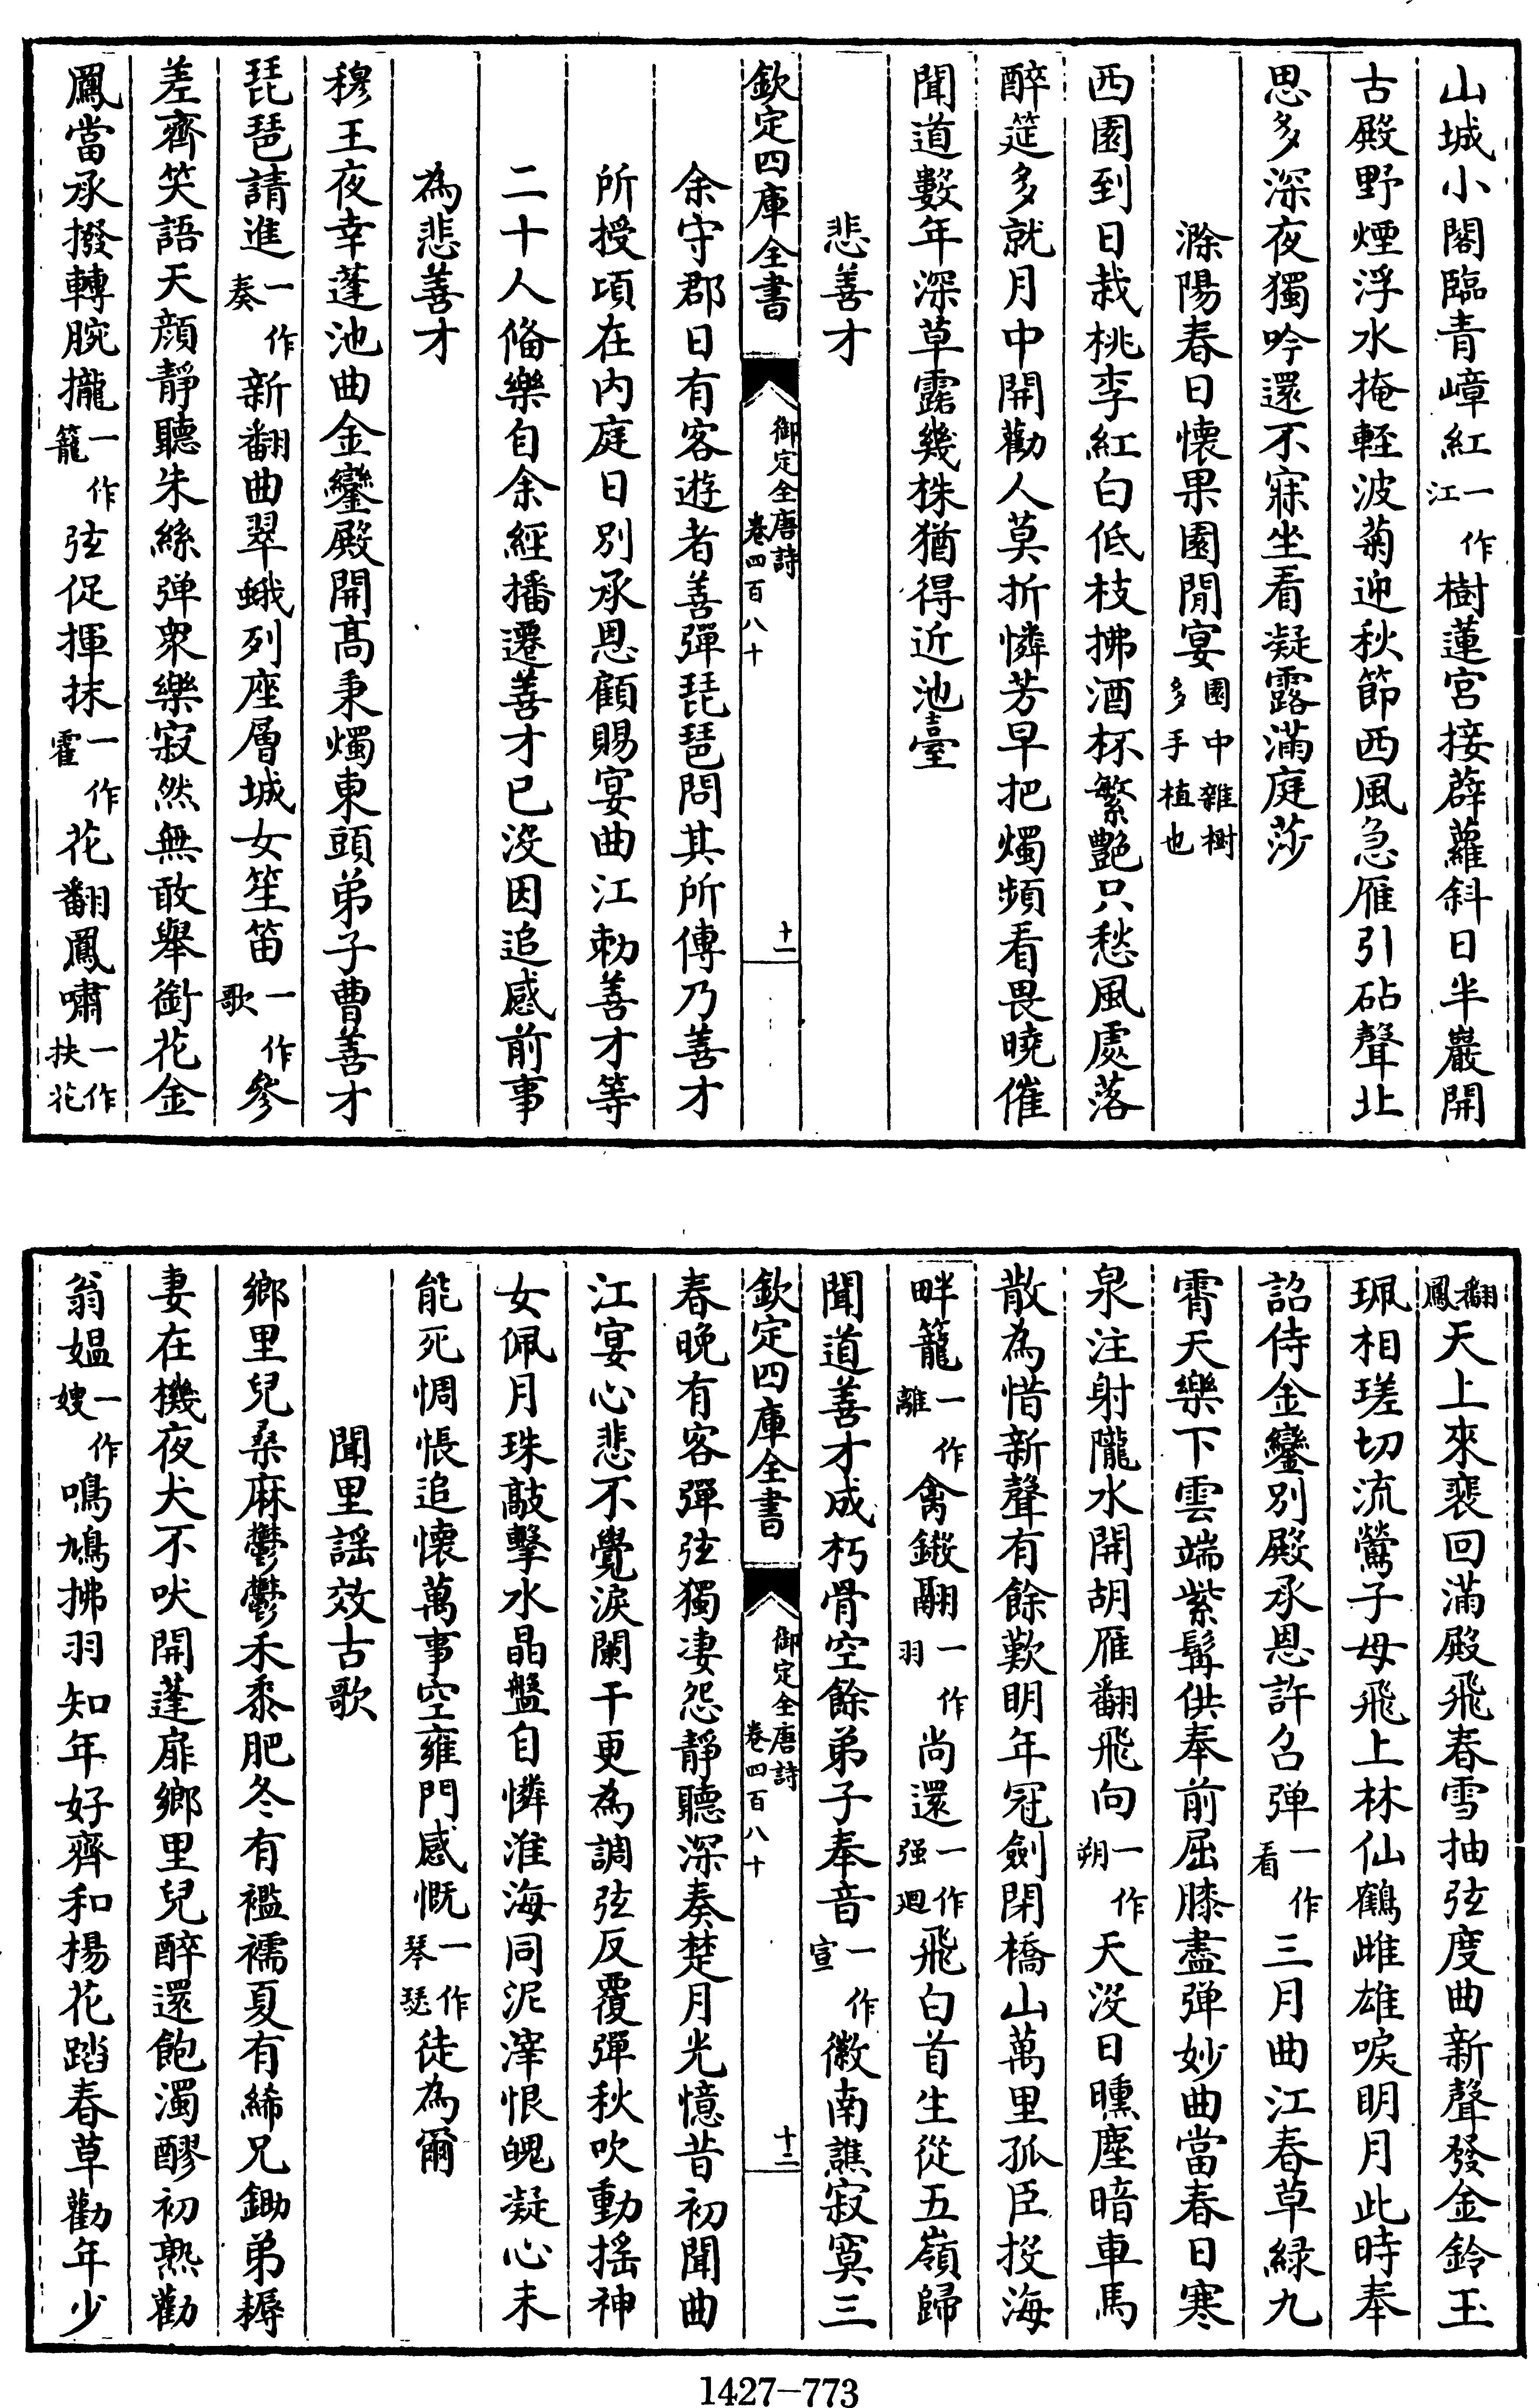 山城小閣臨青嶂紅一作江樹蓮宮接薜蘿斜日半巖開
古殿野煙浮水掩輕波菊迎秋節西風急雁引砧聲北
思多深夜獨吟還不寐坐看凝露滿庭莎
滁陽春日懷果園閒宴園中雜樹多手植也
西園到日栽桃李紅白低枝拂酒杯繁艷只愁風處落
醉筵多就月中開勸人莫折憐芳早把燭頻看畏曉催
聞道數年深草露幾株猶得近池臺
悲善才
欽定四庫全書 御定全唐詩卷四百八十 十一
余守郡日有客遊者善彈琵琶問其所傳乃善才
所授頃在内庭日別承恩顧賜宴曲江勅善才等
二十人俻樂自余經播遷善才已沒因追感前事
為悲善才
穆王夜幸蓬池曲金鑾殿開高秉燭東頭弟子曹善才
琵琶請進一作奏新翻曲翠蛾列座層城女笙笛一作歌參
差齊笑語天顔靜聽朱絲弹衆樂寂然無敢舉銜花金
鳳當承撥轉腕攏一作籠弦促揮抹一作霍花翻鳳嘯一作扶花
翻鳳天上來裴回滿殿飛春雪抽弦度曲新聲發金鈴玉
珮相瑳切流鶯子母飛上林仙鶴雌雄唳明月此時奉
詔侍金鑾別殿承恩許召弹一作看三月曲江春草緑九
霄天樂下雲端紫髯供奉前屈膝盡弹妙曲當春日寒
泉注射隴水開胡雁翻飛向一作朔天沒日曛塵暗車馬
散為惜新聲有餘歎明年冠劍閉橋山萬里孤臣投海
畔籠一作離禽鎩翮一作羽尚還一作强迴飛白首生從五嶺歸
聞道善才成朽骨空餘弟子奉音一作宣徽南譙寂寞三
欽定四庫全書 御定全唐詩卷四百八十 十二
春晚有客彈弦獨凄怨靜聽深奏楚月光憶昔初聞曲
江宴心悲不覺淚闌干更為調弦反覆彈秋吹動摇神
女佩月珠敲擊水晶盤自憐淮海同泥滓恨魄凝心未
能死惆悵追懷萬事空雍門感慨一作琴瑟徒為爾
聞里謡效古歌
鄉里兒桑麻鬱鬱禾黍肥冬有襤襦夏有絺兄鋤弟耨
妻在機夜犬不吠開蓬扉鄉里兒醉還飽濁醪初熟勸
翁媪一作嫂鳴鳩拂羽知年好齊和楊花踏春草勸年少
1427-773